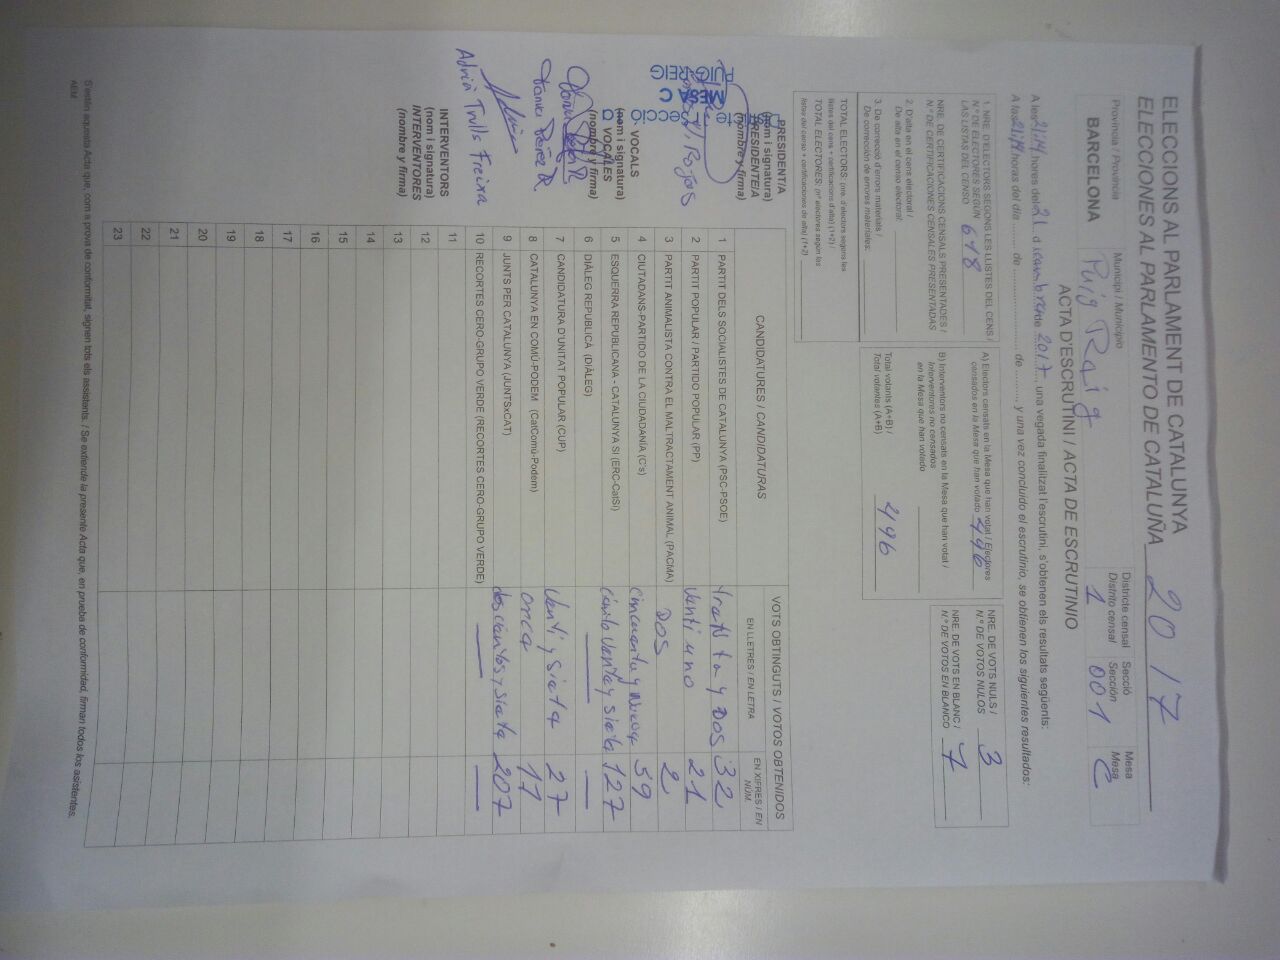 ELECCIONS AL PARLAMENT DE CATALUNYA
ELECCIONES AL PARLAMENTO DE CATALUÑA 2017
Província / Provincia
BARCELONA
Municipi / Municipio
Puig Raig
Districte censal
Distrito censal
1
Secció
Sección
001
Mesa
Mesa
C
ACTA D'ESCRUTINI / ACTA DE ESCRUTINIO
A les 21:14 hores del 21 d 2017, una vegada finalitzat l'escrutini, s'obtenen els resultats següents:
A las 21:14 horas del día ........ de ........................ de ........, y una vez concluido el escrutinio, se obtienen los siguientes resultados:
1. NRE. D'ELECTORS SEGONS LES LLISTES DEL CENS /
N.º DE ELECTORES SEGÚN
LAS LISTAS DEL CENSO 618
NRE. DE CERTIFICACIONS CENSALS PRESENTADES /
N.º DE CERTIFICACIONES CENSALES PRESENTADAS
2. D'alta en el cens electoral /
De alta en el censo electoral:
3. De correcció d'errors materials /
De corrección de errores materiales:
TOTAL ELECTORS: (nre. d'electors segons les
llistes del cens + certificacions d'alta) (1+2) /
TOTAL ELECTORES: (nº electores según las
listas del censo + certificaciones de alta) (1+2)
A) Electors censats en la Mesa que han votat / Electores
censados en la Mesa que han votado 496
B) Interventors no censats en la Mesa que han votat /
Interventores no censados
en la Mesa que han votado
Total votants (A+B) /
Total votantes (A+B) 496
NRE. DE VOTS NULS /
N.º DE VOTOS NULOS 3
NRE. DE VOTS EN BLANC /
N.º DE VOTOS EN BLANCO 7
CANDIDATURES / CANDIDATURAS
VOTS OBTINGUTS / VOTOS OBTENIDOS
EN LLETRES / EN LETRA
EN XIFRES / EN NÚM.
1 PARTIT DELS SOCIALISTES DE CATALUNYA (PSC-PSOE) Treinta y Dos 32
2 PARTIT POPULAR / PARTIDO POPULAR (PP) Ventiuno 21
3 PARTIT ANIMALISTA CONTRA EL MALTRACTAMENT ANIMAL (PACMA) DOS 2
4 CIUTADANS-PARTIDO DE LA CIUDADANÍA (C's) Cincuenta y Nueve 59
5 ESQUERRA REPUBLICANA - CATALUNYA SI (ERC-CatSí) ciento Venti y siete 127
6 DIÀLEG REPUBLICÀ (DIÀLEG)
7 CANDIDATURA D'UNITAT POPULAR (CUP) Venti y siete 27
8 CATALUNYA EN COMÚ-PODEM (CatComú-Podem) once 11
9 JUNTS PER CATALUNYA (JUNTSxCAT) doscientos y siete 207
10 RECORTES CERO-GRUPO VERDE (RECORTES CERO-GRUPO VERDE)
11
12
13
14
15
16
17
18
19
20
21
22
23
PRESIDENT/A
(nom i signatura)
PRESIDENTE/A
(nombre y firma)
Rojas
MESA C
PUIG-REIG
VOCALS
(nom i signatura)
VOCALES
(nombre y firma)
INTERVENTORS
(nom i signatura)
INTERVENTORES
(nombre y firma)
Adrià Trulls Freixa
S'estén aquesta Acta que, com a prova de conformitat, signen tots els assistents. / Se extiende la presente Acta que, en prueba de conformidad, firman todos los asistentes.